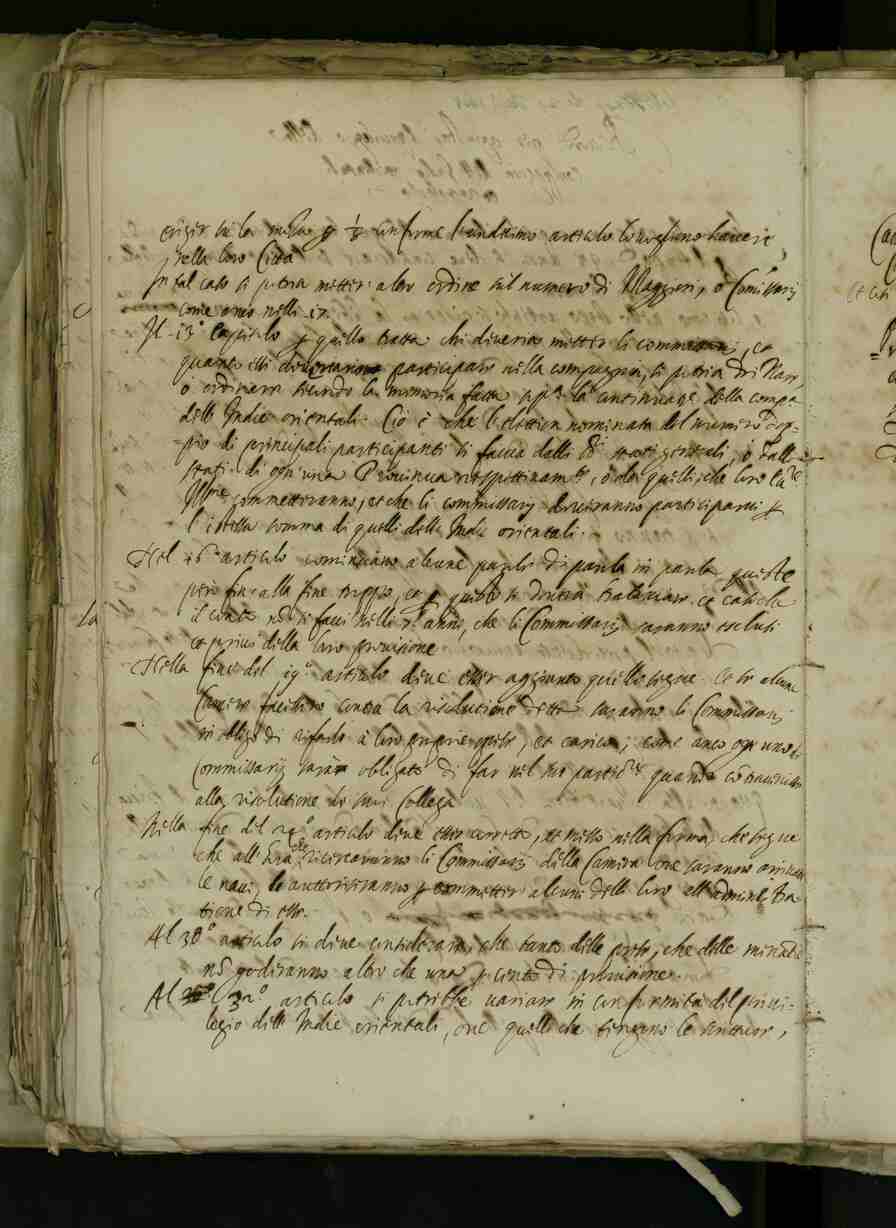 eriger in la misura p 1/8 conforme l'undecimo articolo lo vogliono havere
nella loro Città
In tal caso si potria metter altro ordine sul numero di Maggiori, o Comissarij
come anco nelli 17.
Il 13° Capitolo p quello tratta chi doverà metter li commissarij, et
quanto essi doveranno participare nella compagnia, si potria dri
o ordinare secondo la memoria fatta p la continuat.e della compa
dell' Indie orientali. Ciò è che l'elettion nominata del numero dop-
pio di principali participanti si faccia dalli SS.ri stati generali, o dalli
stati di ogn'una Provincia respettivam.te, o da quelli, che loro
Ill.me commetteranno, et che li commissarij doveranno participarvi p
l'istessa somma di quelli dell' Indie orientali.
Nel 16° articolo cominciano alcune parole di parola in parola queste
però fin alla fine troppo, et p questo si dovrà tralasciare, et caso che
il conto nõ si facci nelli 7. anni, che li Commissarij saranno esclusi
et privi della loro provisione
Nella fine del 19° articolo deve esser aggiunto quello segue. Et se alcune
Camere facessero contra la risolutione detta saranno li Commissarij
in obligo di rifarlo à loro proprie spese, et carico; come anco ogn'uno de
Commissarij sarà obligato di far nel suo partic.re quando cõtravenisse
alla risolutione de suoi Collega
Nella fine del 29° articolo deve esser corretto, et messo nella forma, che segue
che all' Entrate riceveranno li Commissarij della Camera ove saranno arrivate
le navi, lo auttoriseranno p commetter alcuni della loro all' administra
tione di esso.
Al 30° articolo si deve considerare, che tanto delle prese, che delle mercãtie
nõ goderanno altro che uno p cento di provisione.
Al 32° articolo si potrebbe variare in conformità del privi-
legio dell' Indie orientali, ove quelli che tengono le scritture,